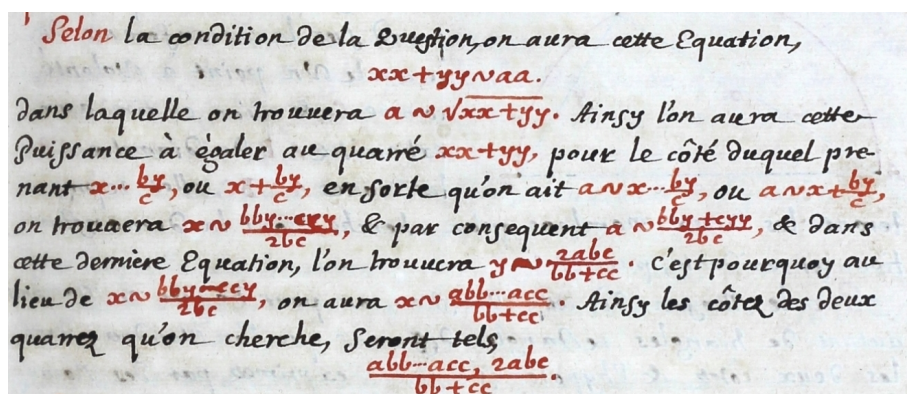 Selon la condition de la Question, on aura cette Equation,
xx+yy ~ aa.
dans laquelle on trouvera a ~ √xx+yy. Ainsy l'on aura cette
Puissance à ègaler au quarré xx+yy, pour le côté duquel pre-
nant x...by/c, ou x+by/c, en sorte qu'on ait a ~ x...by/c, ou a ~ x+by/c,
on trouvera x ~ bby...ccy/2bc, & par consequent a ~ bby+cyy/2bc, & dans
cette derniere Equation, l'on trouvera y ~ 2abc/bb+cc. c'est pourquoy au
lieu de x ~ bby...ccy/2bc, on aura x ~ abb...acc/bb+cc. Ainsy les côtez des deux
quarrez qu'on cherche, seront tels,
abb...acc, 2abc/bb+cc.